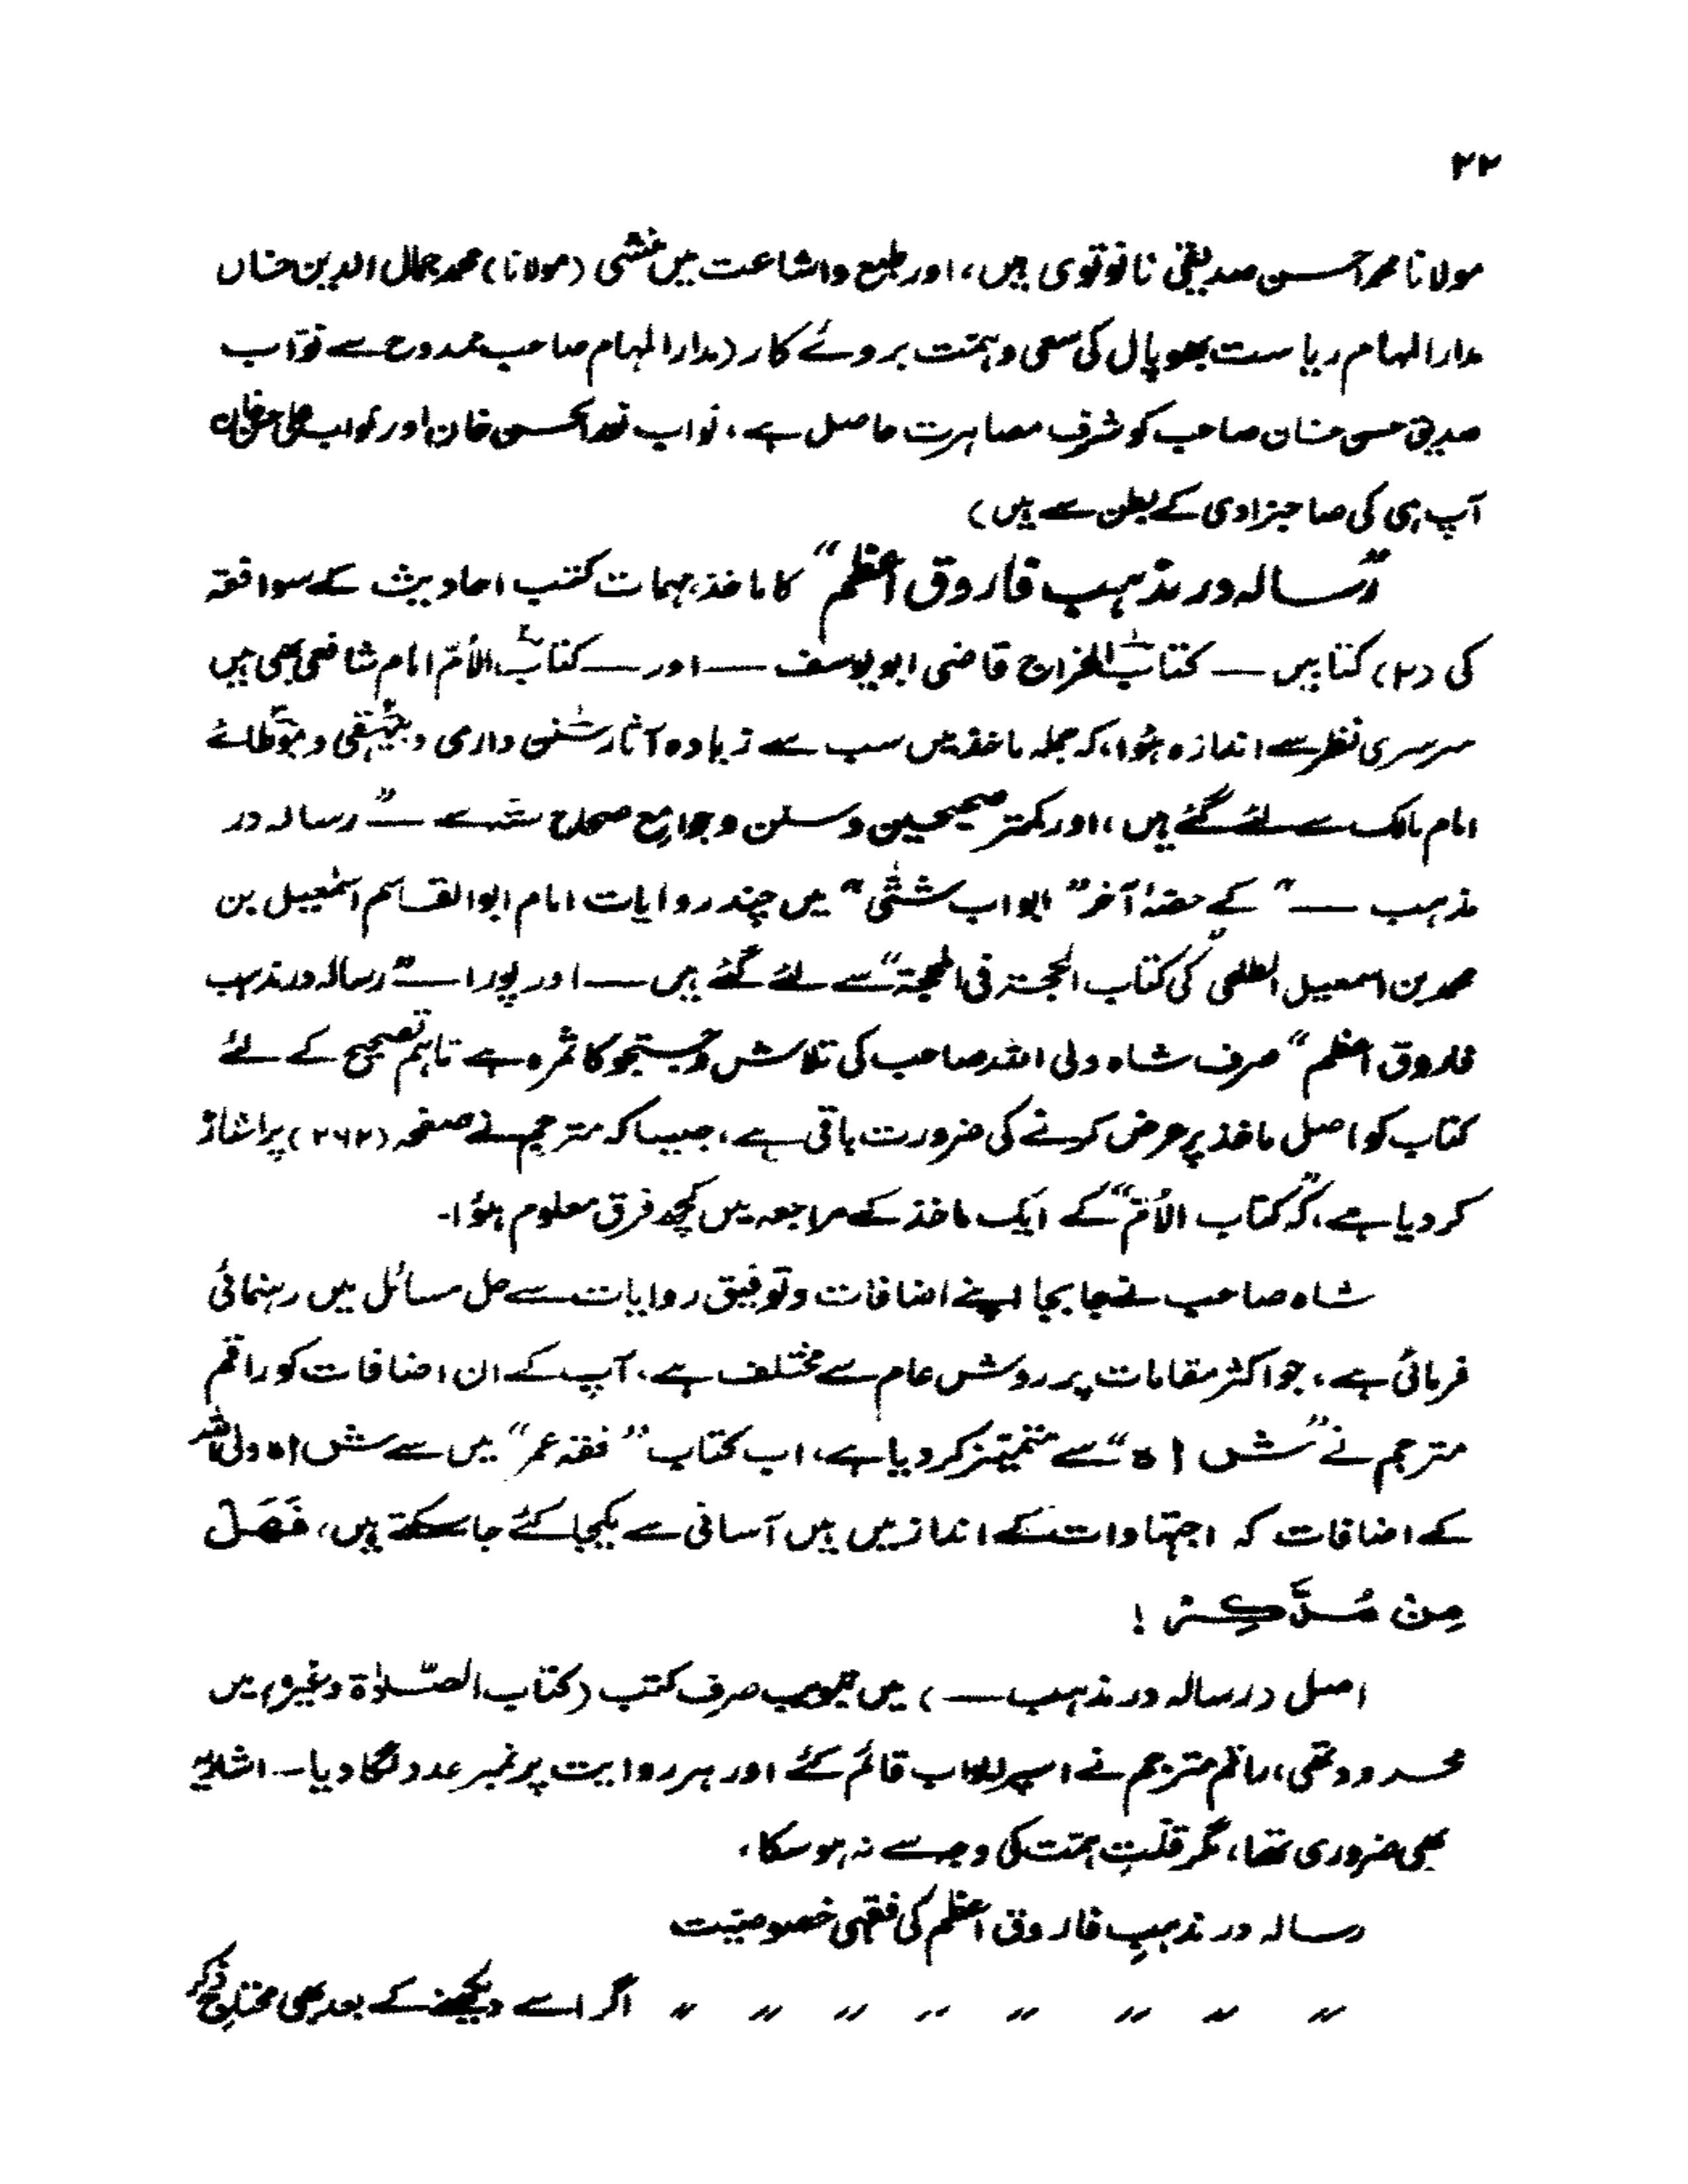 ۲۲
مولانا محمد احسن صدیقی نانوتوی ہیں، اور طبع و اشاعت میں منشی (مولانا) محمد جمال الدین خاں
مدار المہام ریاست بھوپال کی سعی و ہمت بروئے کار (مدار المہام صاحب ممدوح سے نوّاب
صدیق حسن خان صاحب کو شرفِ مصاہرت حاصل ہے، نواب نور الحسن خان اور نواب علی حسن خان
آپ ہی کی صاحبزادی کے بطن سے ہیں)
"رسالہ در مذہب فاروق اعظم" کا ماخذ، مہمات کتب احادیث کے سوا فقہ
کی (۲) کتابیں — کتاب الخراج قاضی ابو یوسف — اور — کتاب الأم امام شافعی بھی ہیں
سرسری نظر سے اندازہ ہؤا، کہ جملہ ماخذ میں سب سے زیادہ آثار سنن دارمی و بیہقی و مؤطائے
امام مالک سے لئے گئے ہیں، اور کمتر صحیحین و سنن و جوامع صحاح ستہ سے — "رسالہ در
مذہب —" کے حصۂ آخر "ابواب شتّٰی" میں چند روایات امام ابو القاسم اسمٰعیل بن
محمد بن اسمعیل الطلحی کی "کتاب الحجۃ فی المحجۃ" سے لئے گئے ہیں — اور پورا — "رسالہ در مذہب
فاروق اعظم" صرف شاہ ولی اللہ صاحب کی تلاش و جستجو کا ثمرہ ہے تاہم تصحیح کے لئے
کتاب کو اصل ماخذ پر عرض کرنے کی ضرورت باقی ہے، جیسا کہ مترجم نے صفحہ (۲۶۲) پر اشارہ
کر دیا ہے، کہ "کتاب الأم" کے ایک ماخذ کے مراجعہ میں کچھ فرق معلوم ہؤا۔
شاہ صاحب نے جا بجا اپنے اضافات و توفیق روایات سے حل مسائل میں رہنمائی
فرمائی ہے، جو اکثر مقامات پر روش عام سے مختلف ہے، آپ کے ان اضافات کو راقم
مترجم نے "ش ا ہ" سے متمیّز کر دیا ہے، اب کتاب "فقہ عمر" میں سے ش ا ہ ولی اللہ
کے اضافات کہ اجتہادات کے انداز میں ہیں آسانی سے یکجا کئے جا سکتے ہیں، فَهَلْ
مِنْ مُدَّكِرْ !
اصل (رسالہ در مذہب —) میں تبویب صرف کتب (کتاب الصّلوٰة وغیرہ) میں
محدود تھی، راقم مترجم نے اسپر ابواب قائم کئے اور ہر روایت پر نمبر عدد لگا دیا — اشاریہ
بھی ضروری تھا، مگر قلّتِ ہمّت کی وجہ سے نہ ہو سکا،
رسالہ در مذہبِ فاروق اعظم کی فقہی خصوصیّت
〃 〃 〃 〃 〃 〃 〃 〃 اگر اسے دیکھنے کے بعد بھی محتاجِ ذکر